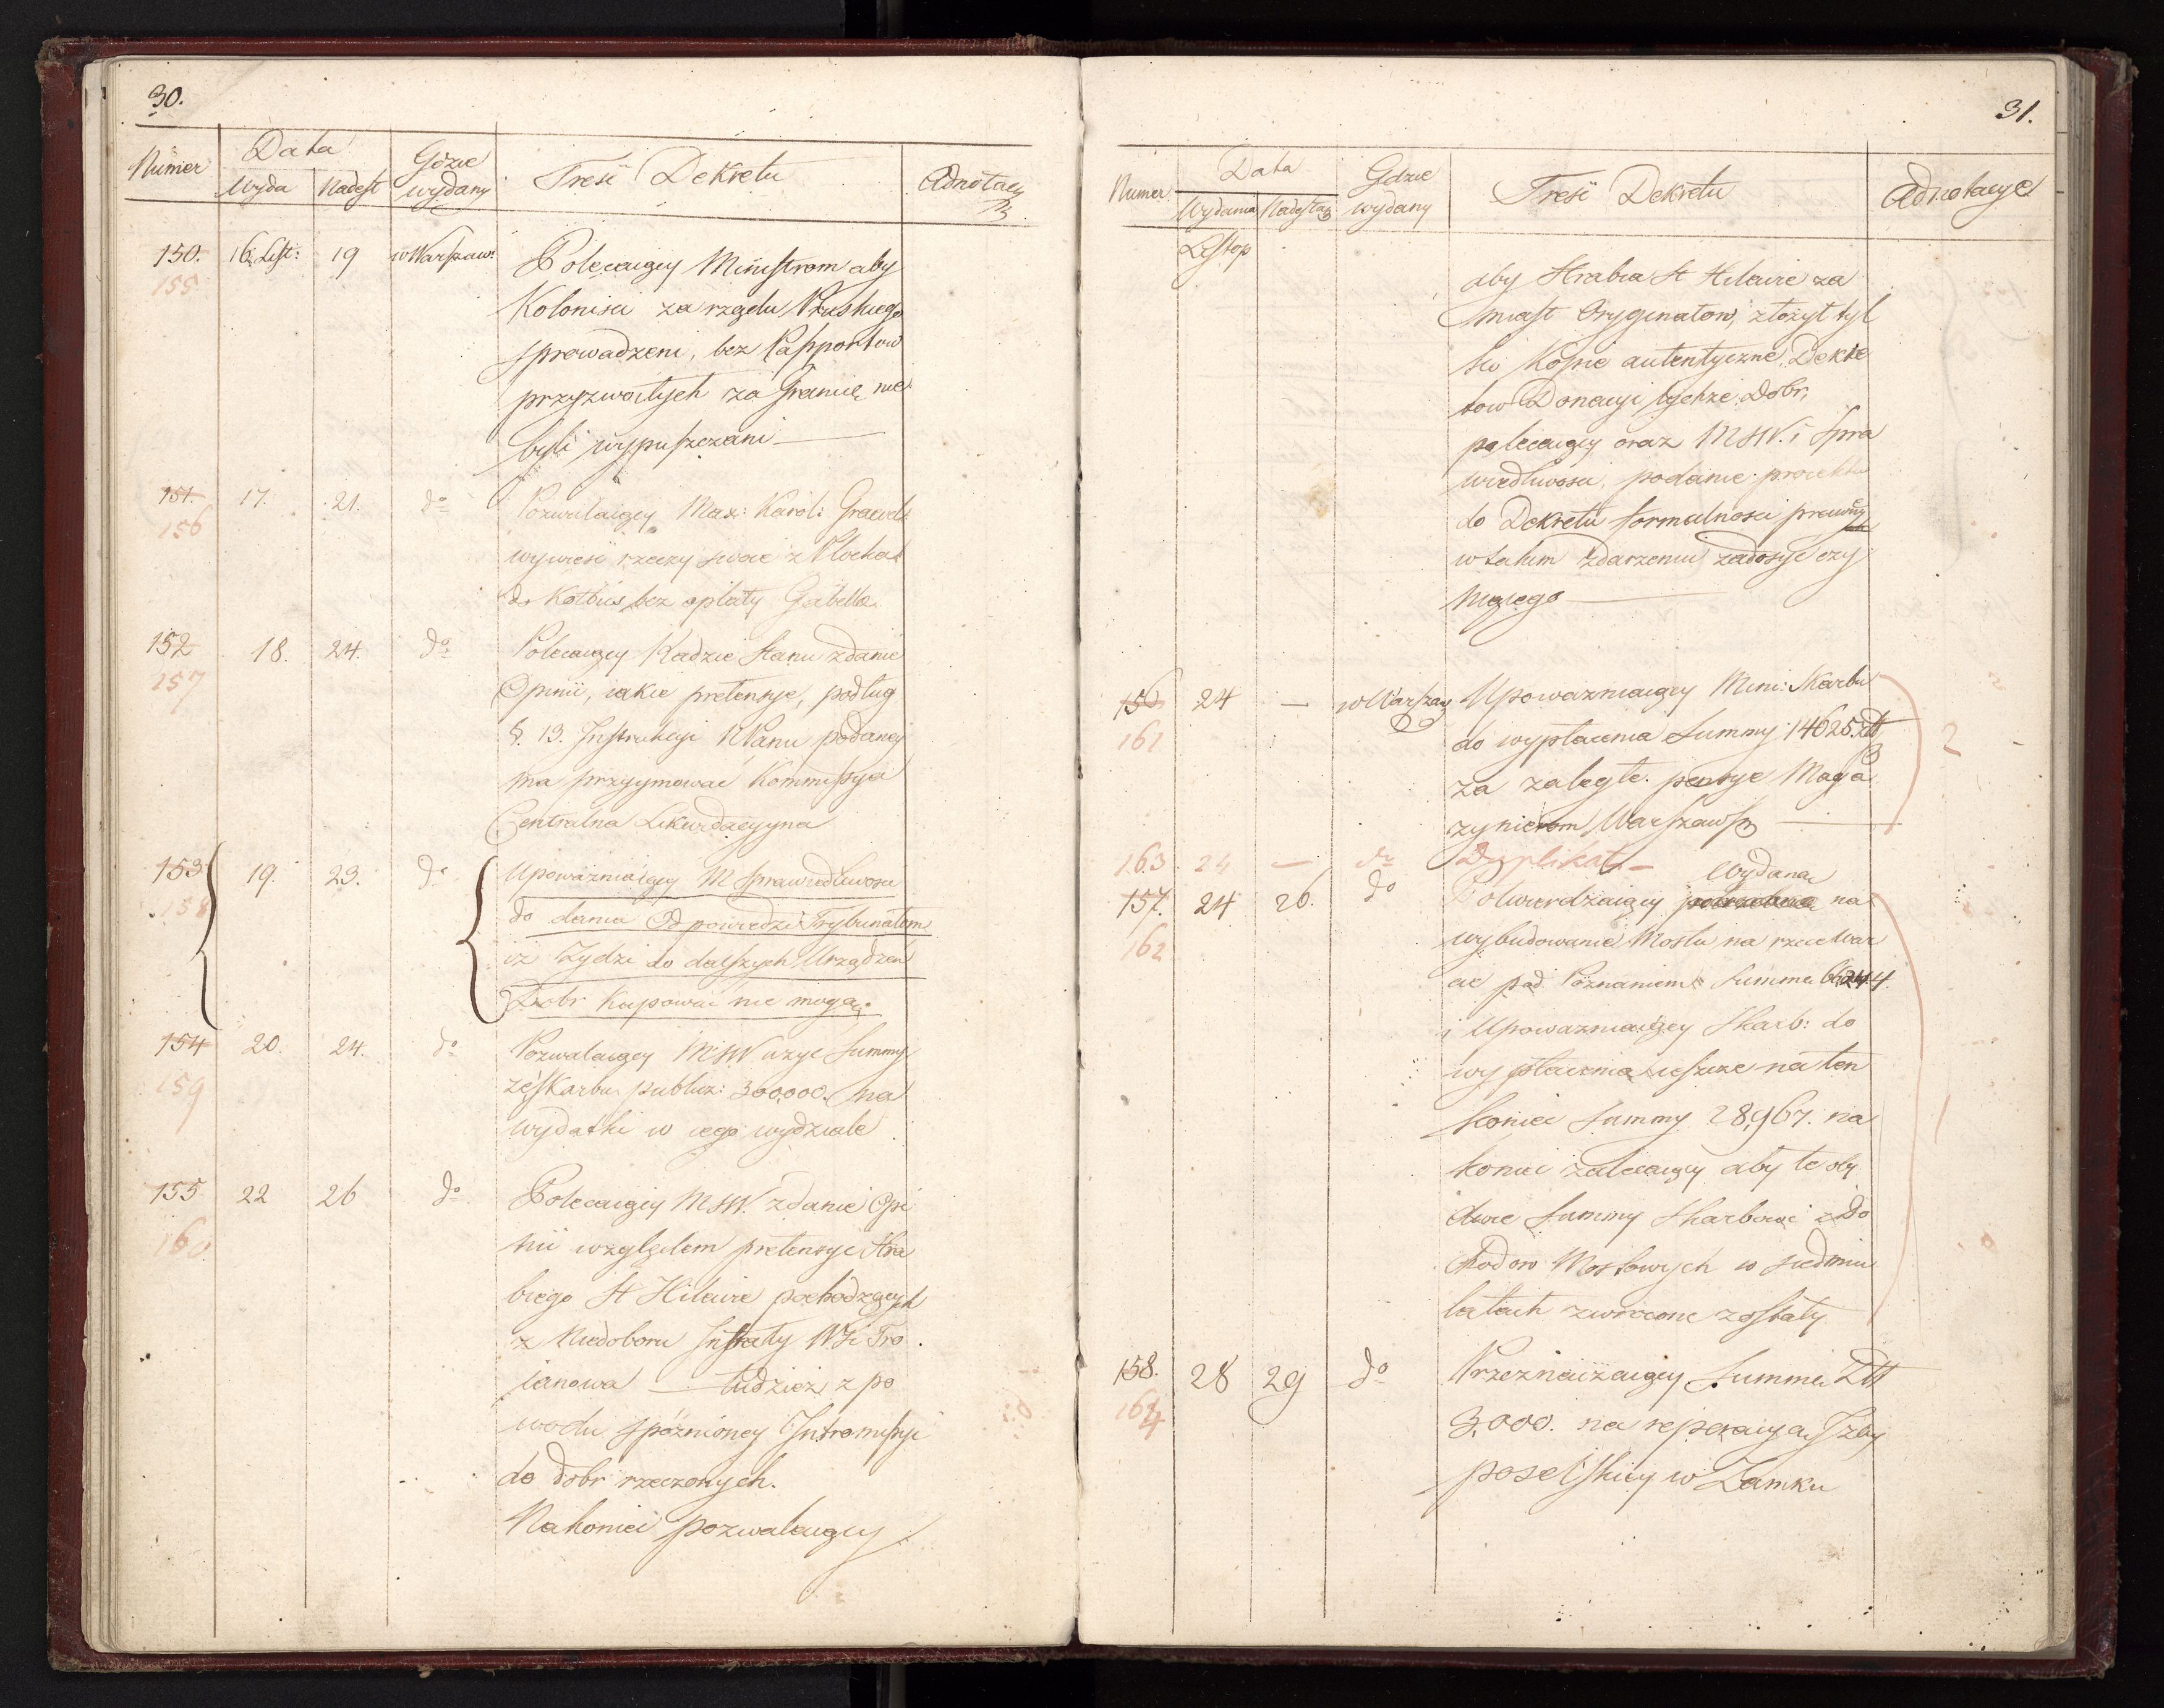 30.
Numer Data Gdzie wydany Treść Dekretu Adnotacy
Wyda Nadest
150. 16 List: 19 w Warszaw: Polecaiący Ministrom aby
155 Koloniści za rządu Pruskiego
sprowadzeni, bez Passportow
przyzwoitych za Granicę nie
byli wypuszczani —
151. 17. 21. do Pozwalaiący Max: Karol:
156 wywieść rzeczy swoie z Płocka
do Kotbus bez opłaty Gabella
152 18. 24. do Polecaiący Radzie Stanu zdanie
157 Opinii, iakie pretensye, podług
§. 13. Instrukcyi podaney
ma przyymować Kommissya
Centralna Likwidacyyna
153 19. 23. do Upoważniaiący M Sprawiedliwości
158 do dania Odpowiedzi Trybunałom
iż Żydzi do dalszych Urządzeń
Dobr kupować nie mogą.
154 20. 24. do Pozwalaiący MSW użyć Summy
159 ze Skarbu publicz: 300,000. na
wydatki w iego wydziale
155 22 26 do Polecaiący MSW. zdanie Opi
160 nii względem pretensye Hra
biego St Hilaire pochodzących
z Niedoboru Intraty Wsi Tro
ianowa — tudzież z po
wodu spóźnioney Intromissyi
do dobr rzeczonych.
Nakoniec pozwalaiący
31.
Numer Data Gdzie wydany Treść Dekretu Adnotacye
Wydania Nadesta
Listop
aby Hrabia St Hilaire za
miast Oryginałow, złożył tyl
ko Kopie autentyczne Dekre
tow Donacyi tychże Dobr,
polecaiący oraz MSW. i Spra
wiedliwości, podanie proiektu
do Dekretu formalności prawney
w takim zdarzeniu zadosyć czy
niącego —
156 24 — w Warszaw Upoważniaiący Mini: Skarbu
161 do wypłacenia Summy 14625. złt 2
za zaległe pensye Maga
zynierom Warszaws —
163 24 — do Duplikat —
Wydana
157. 24 26. do Potwierdzaiący potrzebna na
162 wybudowanie Mostu na rzece War
cie pod Poznaniem Summa
i Upoważniaiący Skarb: do
wypłacenia ieszcze na ten
koniec Summy 28,967. na 1
koniec zalecaiący aby te oby
dwie Summy Skarbowi z Do
chodow Mostowych w siedmiu
latach zwrocone zostały
158. 28 29 do Przeznaczaiący Summa Złt
164 3,000. na reperacyą Izby
poselskiey w Zamku